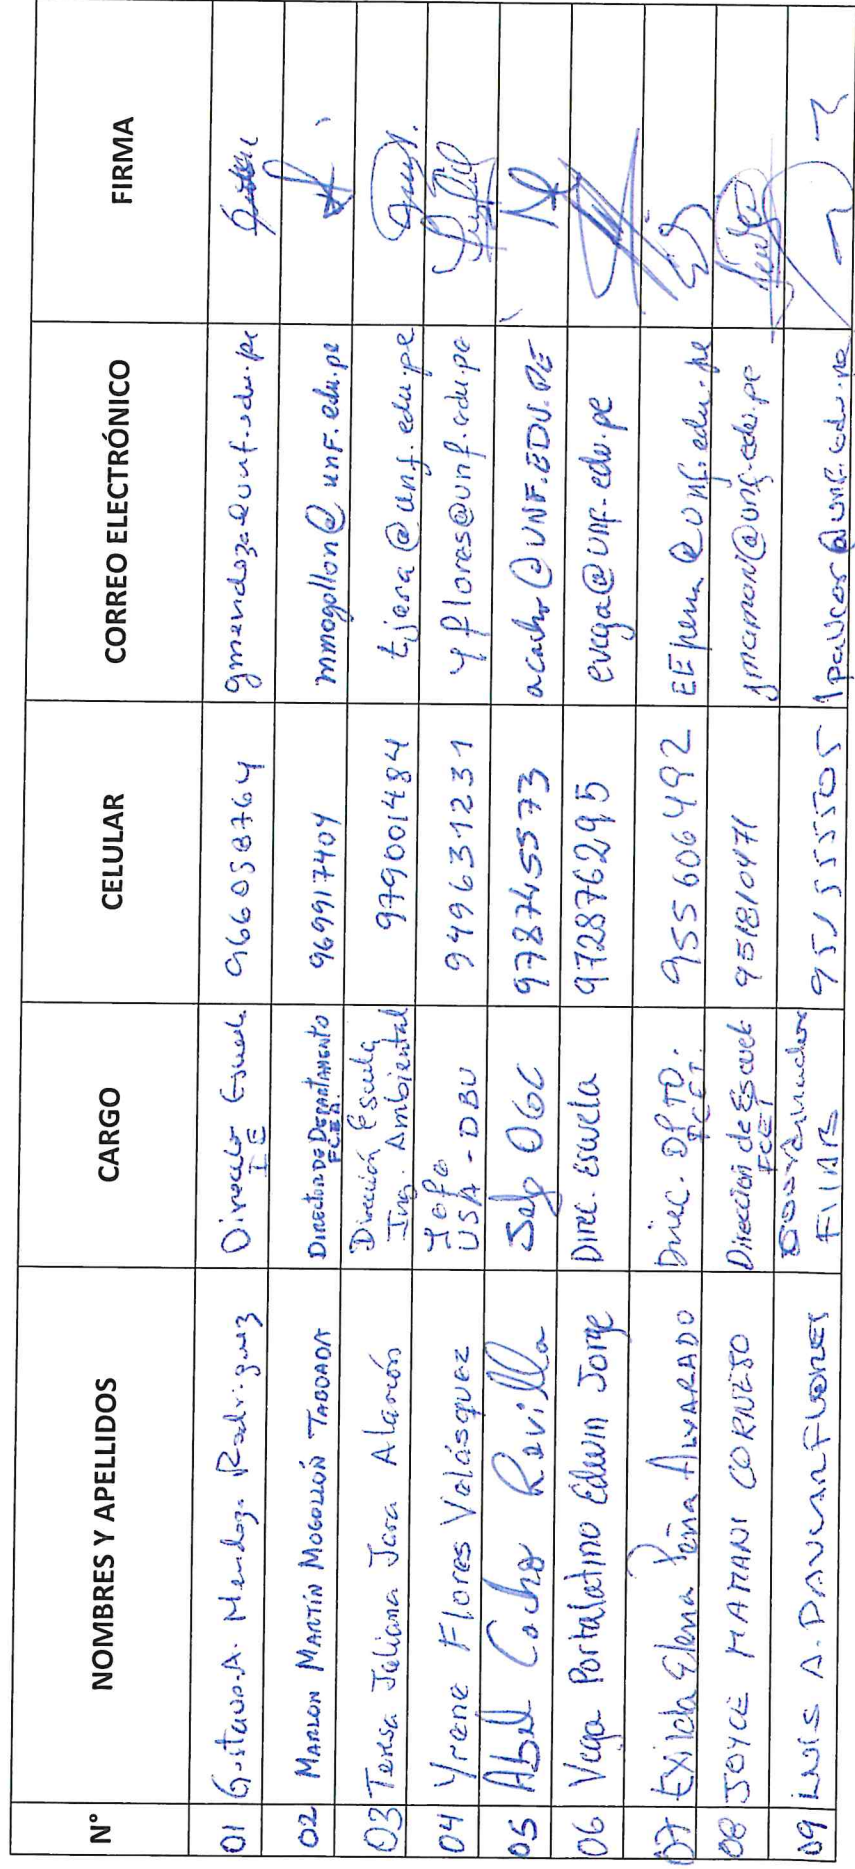 N° NOMBRES Y APELLIDOS CARGO CELULAR CORREO ELECTRÓNICO FIRMA
01 Gustavo A. Mendoza Rodriguez Director Escuela IE 966058764 gmendoza@unf.edu.pe
02 MARLON MARTÍN MOGOLLÓN TABOADA DIRECTOR DE DEPARTAMENTO 969917404 mmogollon@unf.edu.pe
03 Teresa Juliana Jara Alarcón Dirección Escuela Ing. Ambiental 979001484 tjara@unf.edu.pe
04 Yrene Flores Velásquez Jefe USA - DBU 949631231 yflores@unf.edu.pe
05 Abel Cacho Revilla Jefe OGC 978745573 acacho@UNF.EDU.PE
06 Vega Portalatino Edwin Jorge Direc. Escuela 972876295 evega@unf.edu.pe
07 Exilda Elena Peña ALVARADO Direc. DPTO. 955606492 EEpena@unf.edu.pe
08 JOYCE MAMANI CORNEJO Dirección de Escuela FCET 951810471 jmamani@unf.edu.pe
09 LUIS A. PAUCAR FLORES 951555505 lpaucar@unf.edu.pe